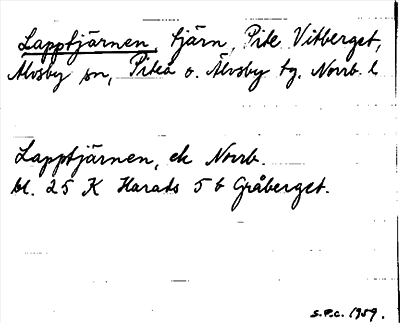 Lapptjärnen, tjärn, Pite Vitberget,
Älvsby sn, Piteå o. Älvsby tg. Norrb. l
Lapptjärnen, ek Norrb.
bl. 25 K Harads 5 b Gråberget.
S.P.C. 1959.